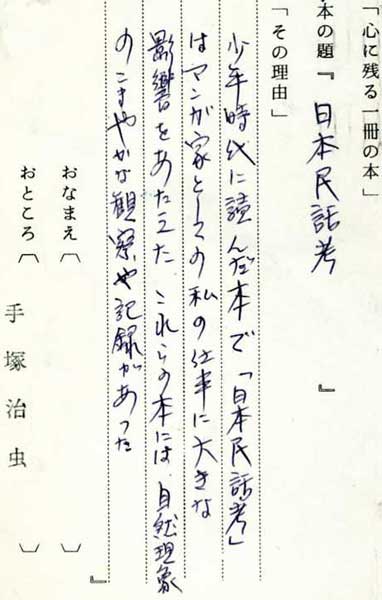 「心に残る一冊の本」
本の題『 日本民話考 』
「その理由」
少年時代に読んだ本で「日本民話考」
はマンガ家としての私の仕事に大きな
影響をあたえた これらの本には、自然現象
のこまやかな観察や記録があった
』
おなまえ〔 〕
おところ〔 手塚治虫 〕